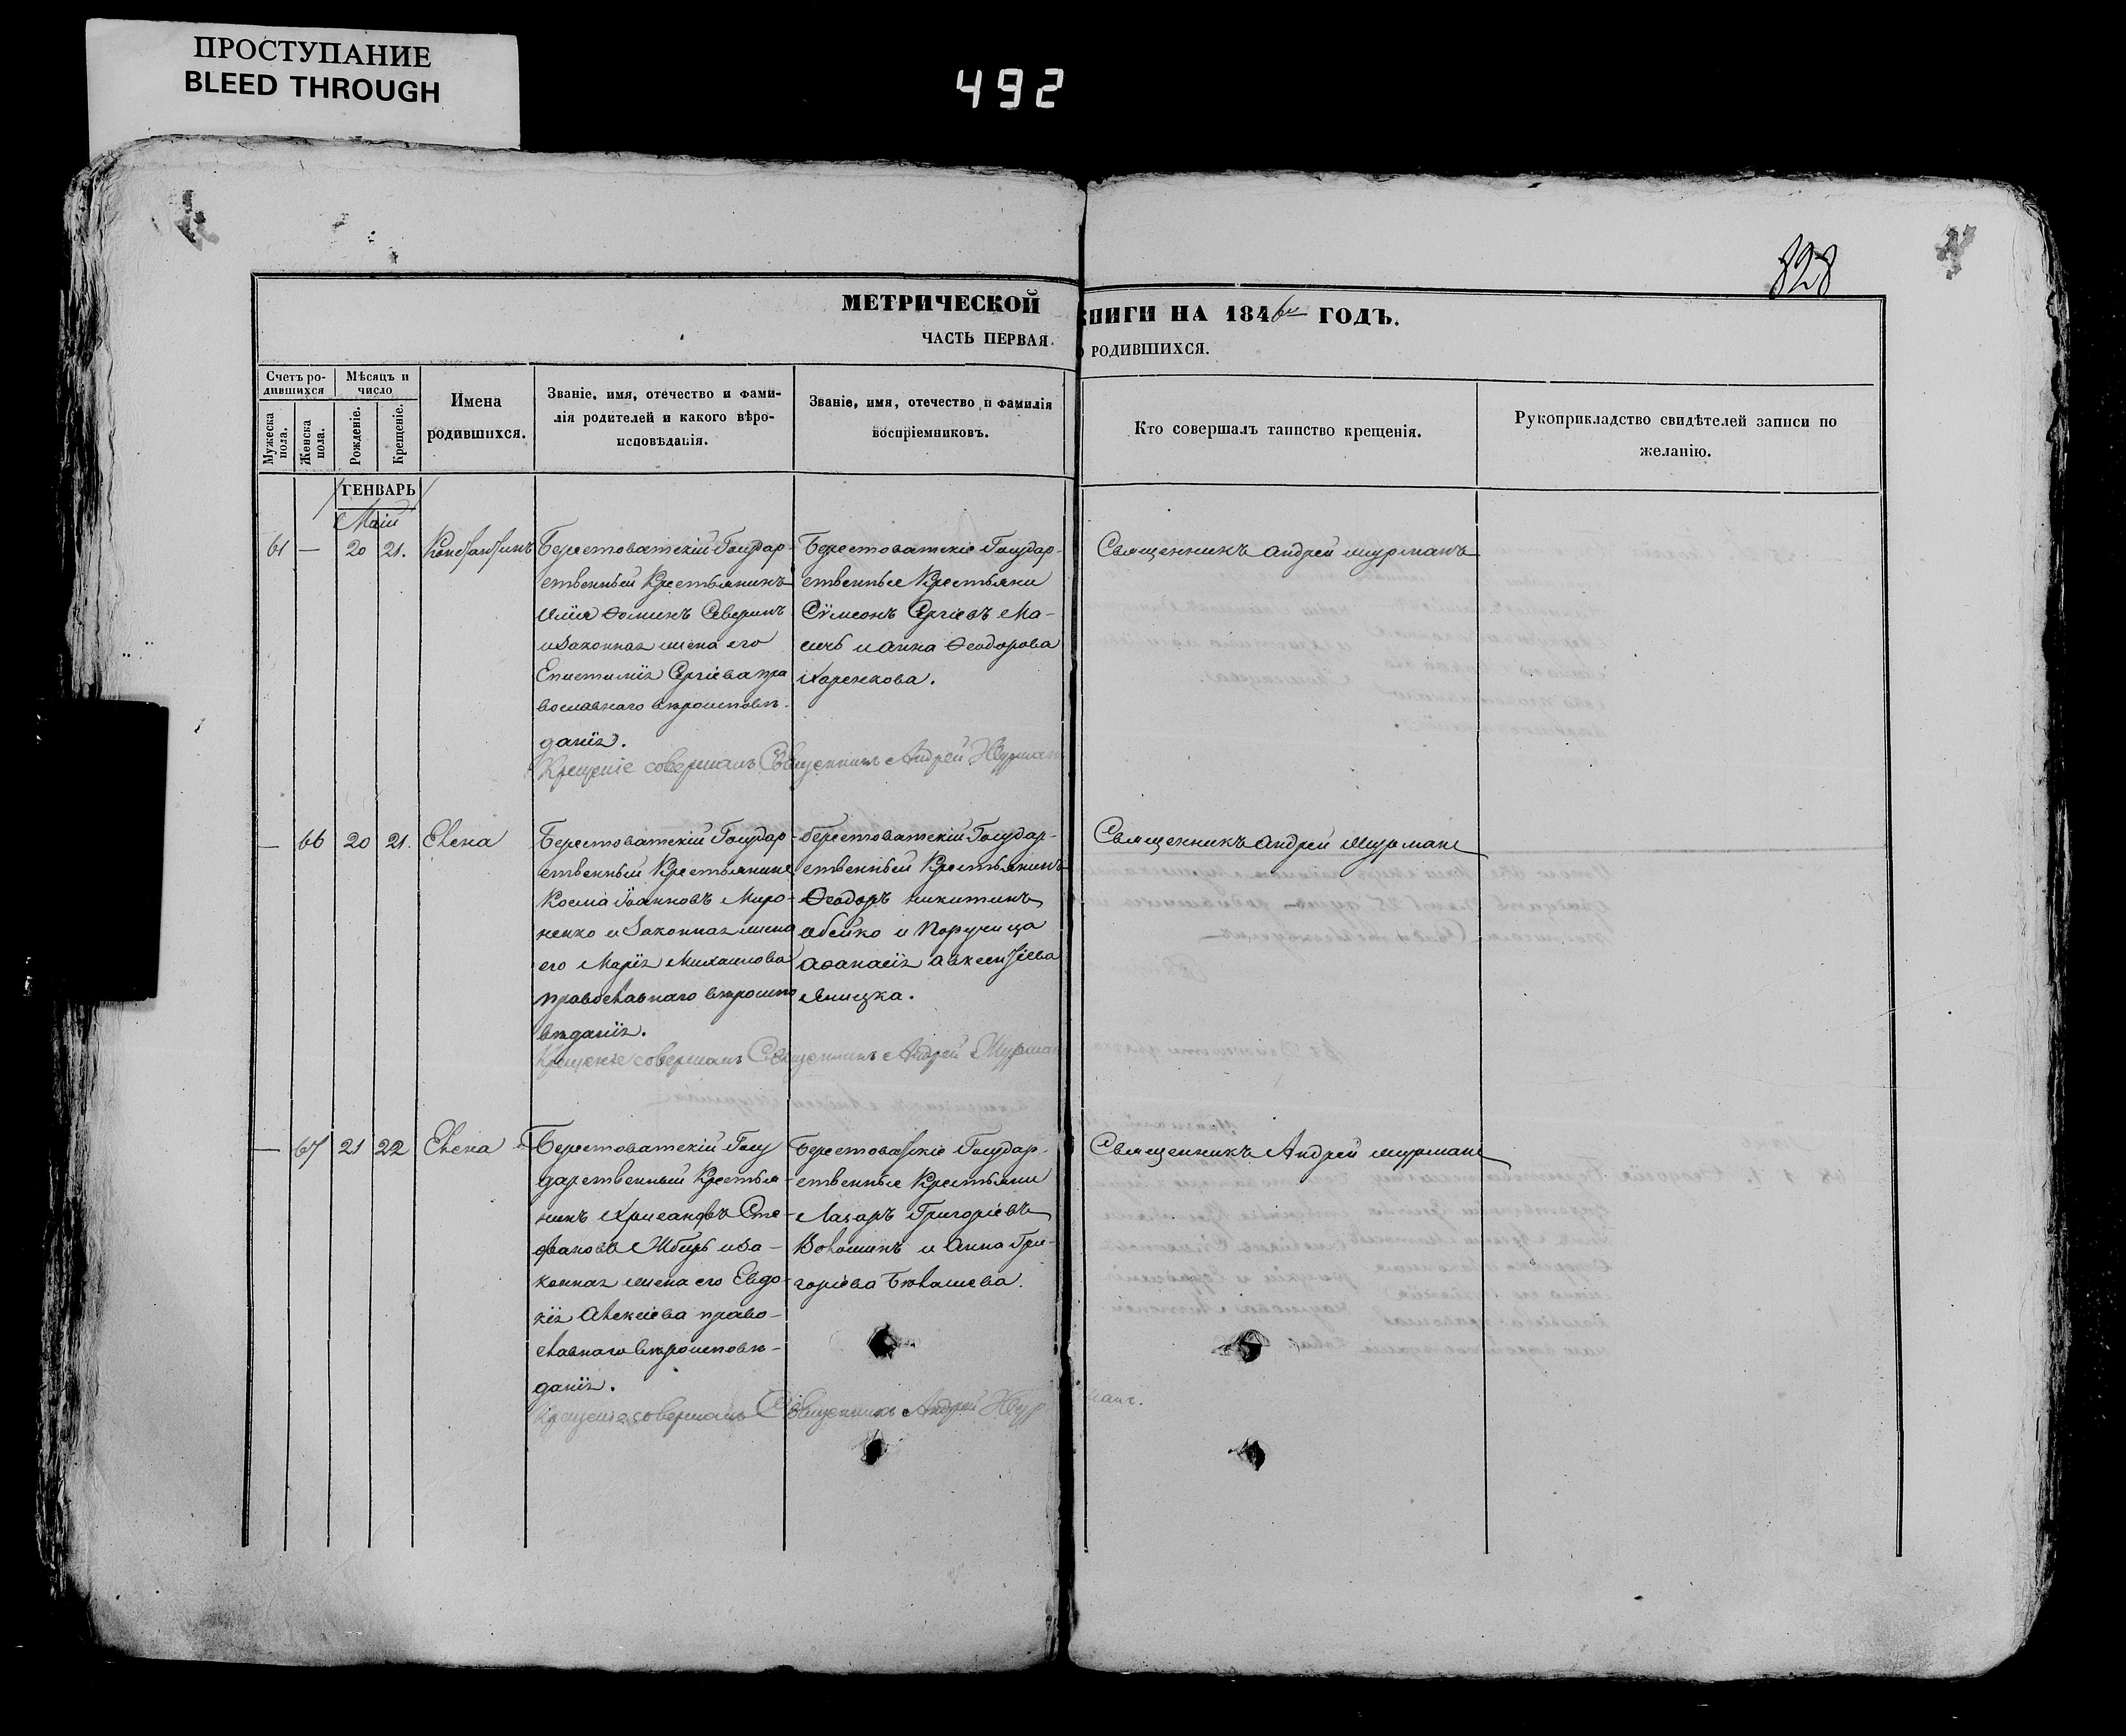 ПРОСТУПАНИЕ
BLEED THROUGH
492
828
МЕТРИЧЕСКОЙ КНИГИ НА 1846й ГОДЪ.
ЧАСТЬ ПЕРВАЯ. О РОДИВШИХСЯ.
Счетъ родившихся
Мужеска пола.
Женска пола.
Мѣсяцъ и число
Рожденіе.
Крещеніе.
Имена родившихся.
Званіе, имя, отечество и фами-
лія родителей и какого вѣро-
исповѣданія.
Званіе, имя, отечество и фамилія
воспріемниковъ.
Кто совершалъ таинство крещенія.
Рукоприкладство свидѣтелей записи по
желанію.
ГЕНВАРЬ
Маій
61 — 20 21. Константинъ
Берестоватскій Государ-
ственный Крестьянинъ
Илія Ѳоминъ Северинъ
и Законная жена его
Епистимія Сергіева пра
вославнаго вѣроисповѣ-
данія.
Крещеніе совершалъ Священникъ Андрей
Берестоватскіе Государ-
ственные Крестьяни
Сѵмеонъ Сергіевъ Ма-
и Анна Ѳеодорова
Харенкова.
Священникъ Андрей
— 66 20 21. Елена
Берестоватскій Государ-
ственный Крестьянинъ
Косма Іоанновъ Миро-
ненко и Законная жена
его Марія Михаилова
православнаго вѣроиспо
вѣданія.
Крещеніе совершалъ Священникъ Андрей
берестоватскій Государ-
ственный Крестьянинъ
Ѳеодоръ Никитинъ
и
Аѳанасія Авксентіева
Священникъ Андрей
— 67 21 22 Елена
Берестоватскій Госу
дарственный Крестья-
нинъ Хрисанфъ Сте-
фановъ и За-
конная жена его Евдо-
кія Алексіева право-
славнаго вѣроисповѣ-
данія.
Крещеніе совершалъ Священникъ Андрей
Берестоватскіе Государ-
ственные Крестьяни
Лазарь Григоріевъ
Волошинъ и Анна Гри-
горіева
Священникъ Андрей